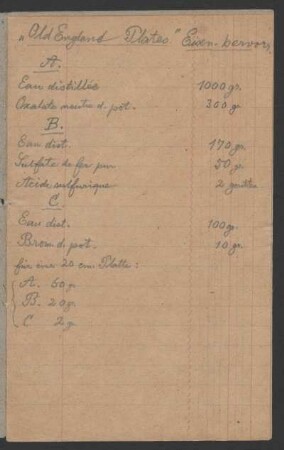 „Old England Plates" Eisen. hervorr.
A.
Eau distillée 1000 gr.
Oxalate neutre d. pot. 300 gr.
B.
Eau dist. 170 gr.
Sulfate de fer pur 50 gr.
Acide sulfurique 2 gouttes
C.
Eau dist. 100 gr.
Brom d. pot. 10 gr.
für eine 20 cm Platte:
A. 60 gr
B. 20 gr
C 2 gr